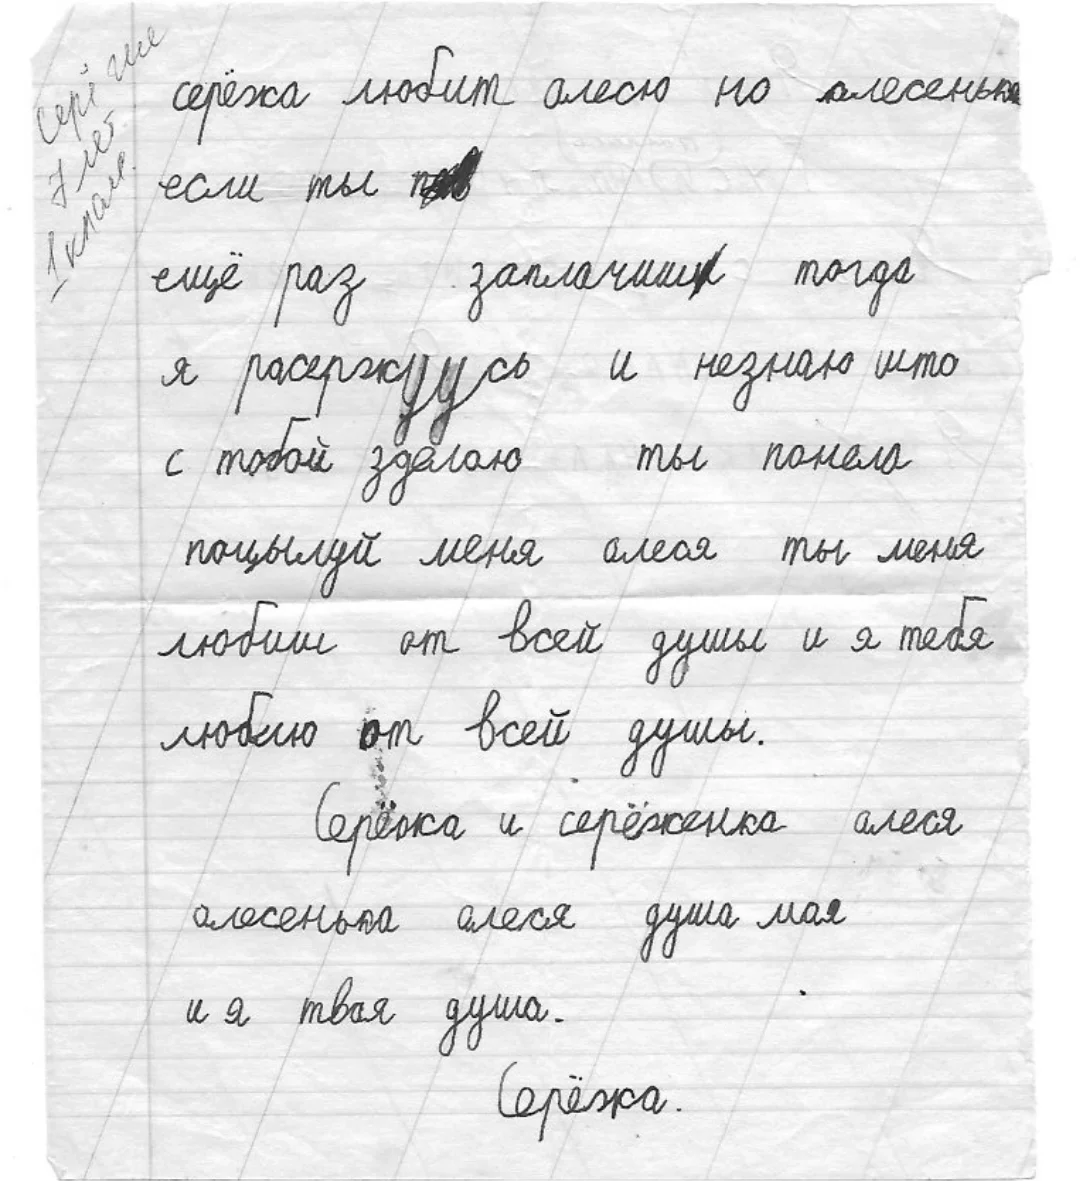 Серёже
7 лет
1 класс.
серёжа любит алесю но алесенька
если ты
ещё раз заплачиш тогда
я расержусь и незнаю што
с тобой зделаю ты понела
поцылуй меня алеся ты меня
любиш от всей душы и я тебя
люблю от всей душы.
Серёжка и серёженка алеся
алесенька алеся душа мая
и я твая душа.
Серёжа.